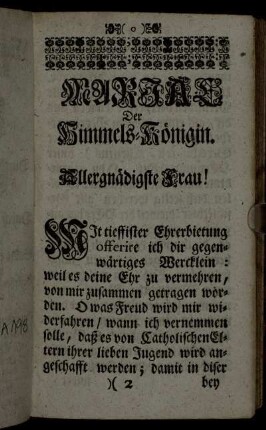 o
MARIAE
Der
Himmels-Königin.
Allergnädigste Frau!
MIt tieffister Ehrerbietung
offerire ich dir gegen-
wärtiges Wercklein:
weil es deine Ehr zu vermehren,
von mir zusammen getragen wor-
den. O was Freud wird mir wi-
derfahren / wann ich vernemmen
solle, daß es von Catholischen El-
tern ihrer lieben Jugend wird an-
geschafft werden; damit in diser
)( 2 bey